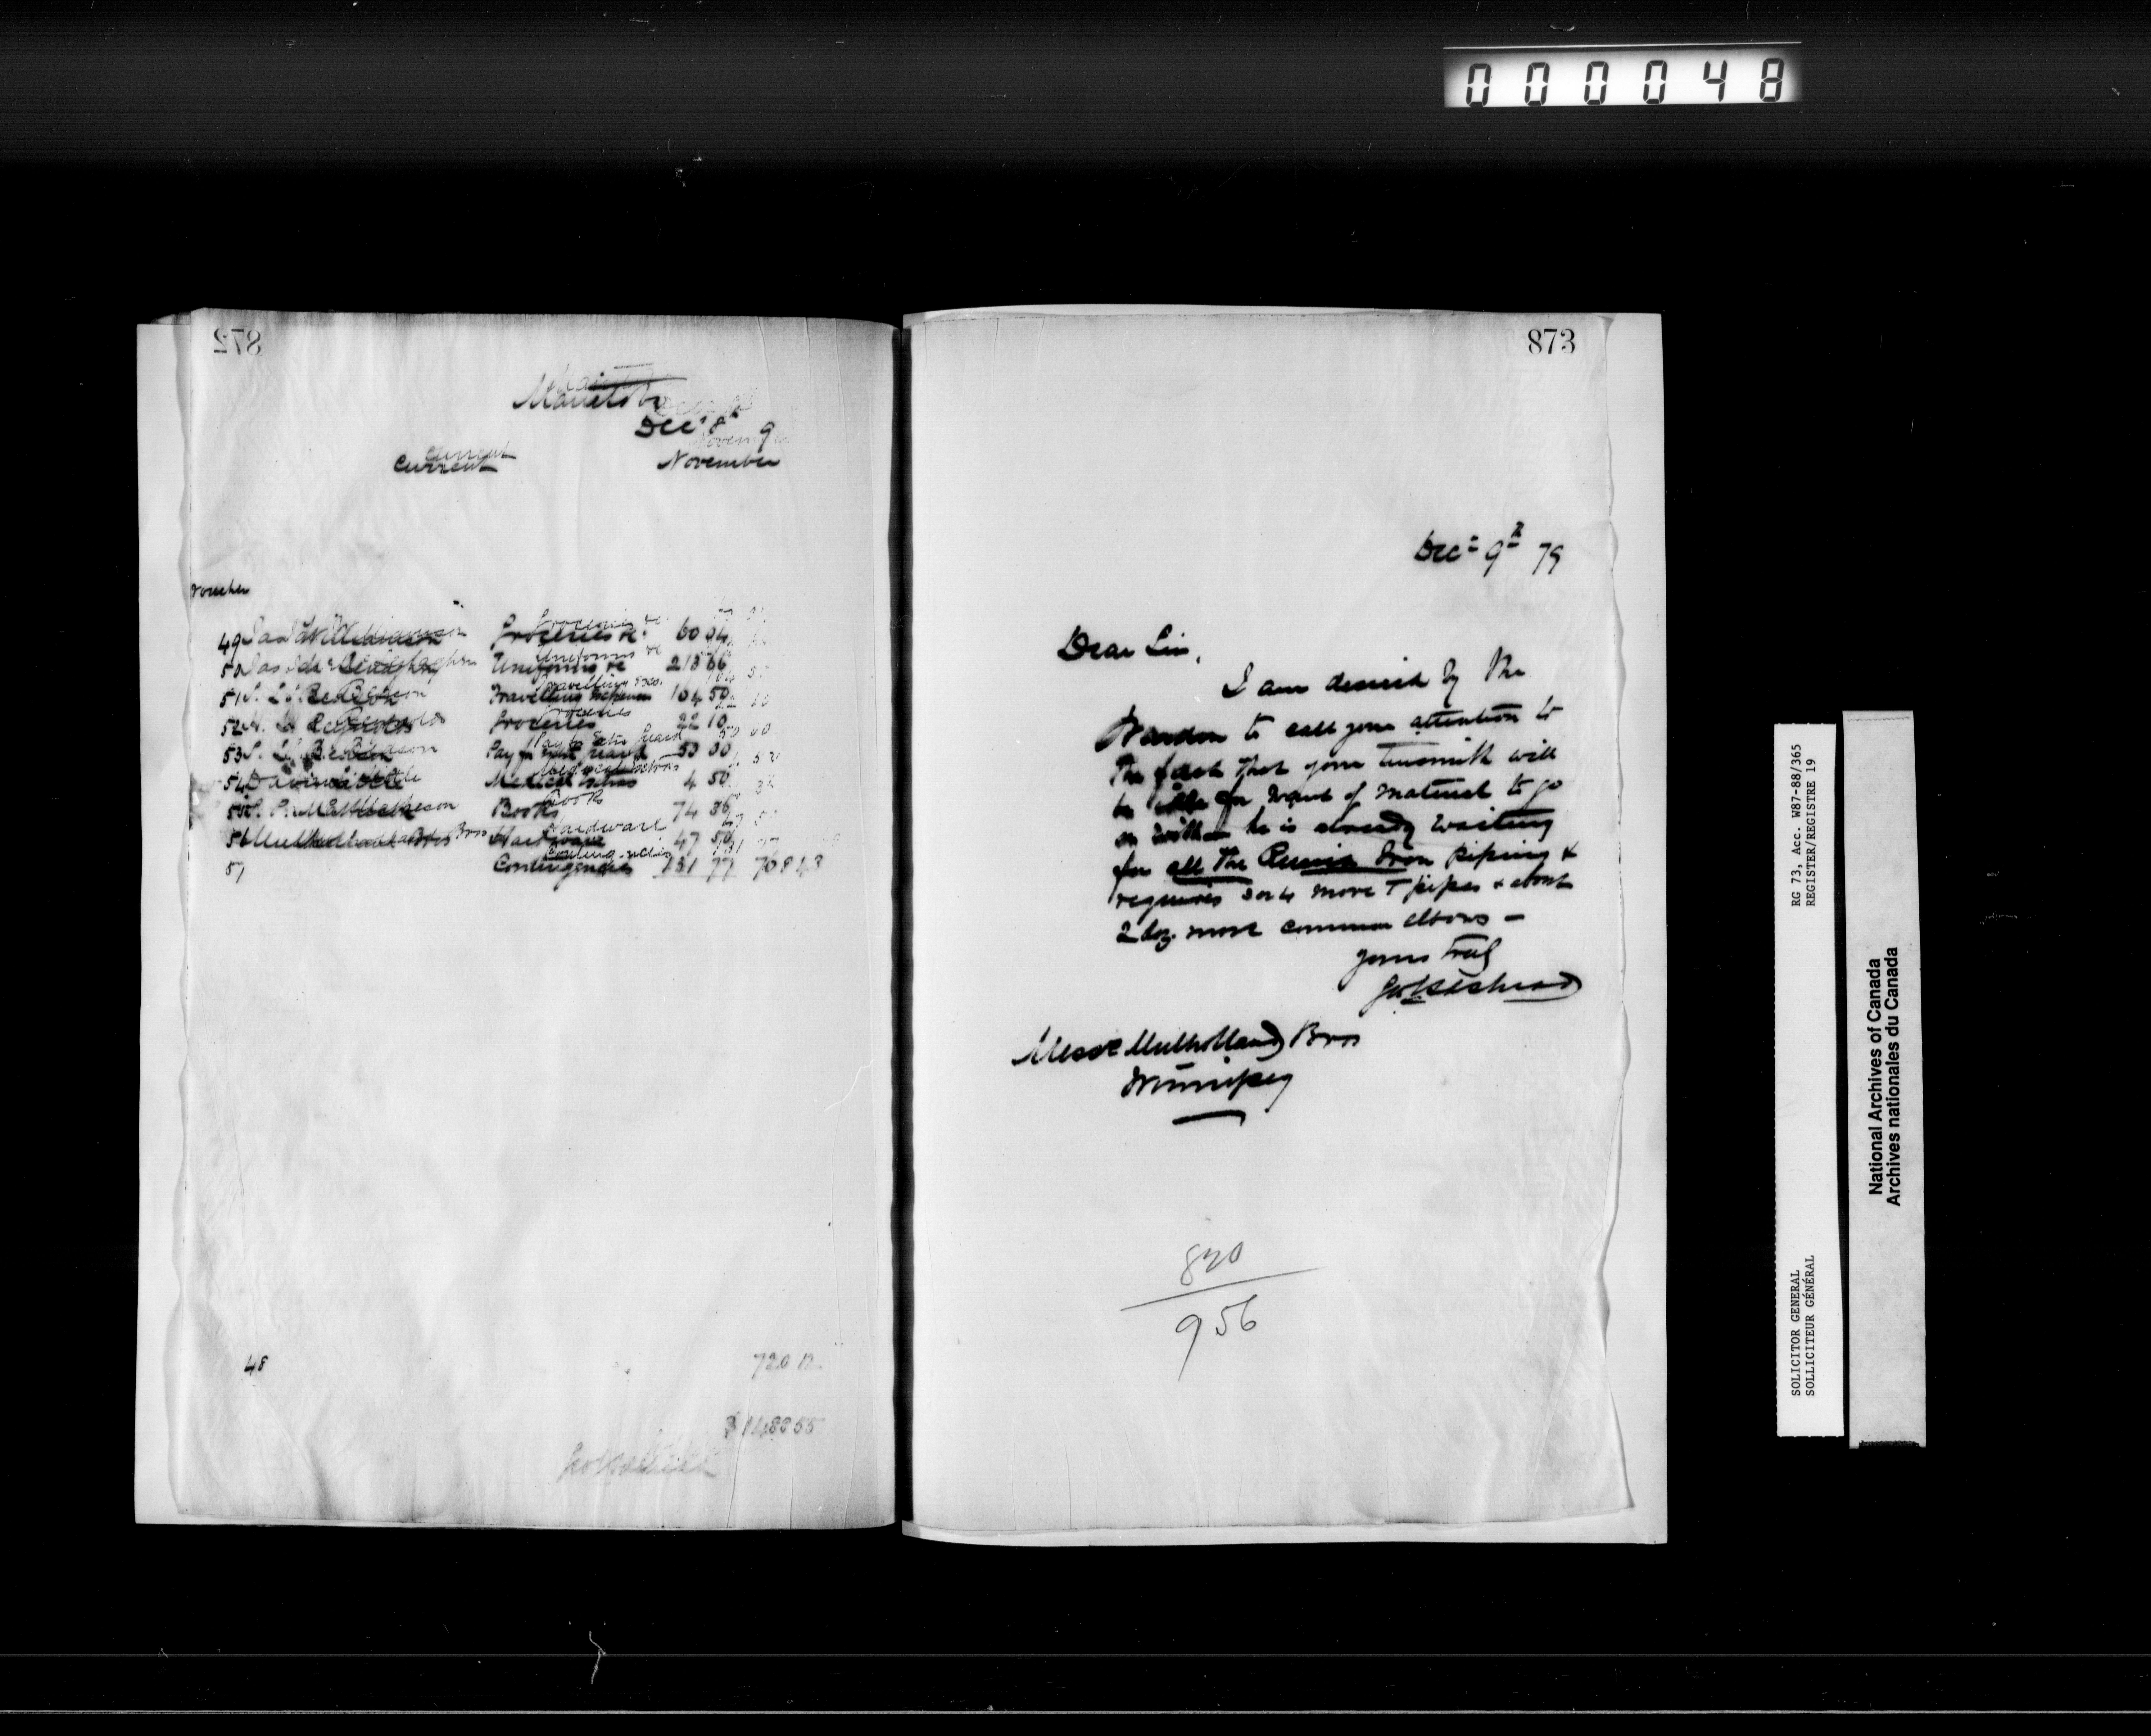 000048
872
Manitoba
Decr 8th 9
Current November
Voucher
49 Jas Williamson Groceries &c 60 94
50 Jas Uniforms &c 215 66
51 S. L. Bedson Travelling expenses 104 50
52 Groceries 22 10
53 S. L. Bedson Pay for extra guard 50 00
54 Medical 4 50
55 Books 74 86
56 Mulholland Bros Hardware 47 50
57 Contingencies 181 77 768 43
48 720 12
$ 1488 55
873
Decr 9th 79
Dear Sir,
I am desired by the
Warden to call your attention to
the fact that your tinsmith will
be idle for want of material to go
on with he is already waiting
for all the Russia Iron piping &
requires 3 or 4 more T pipes & about
2 doz. more common elbows –
Yours truly
Messrs Mulholland Bros
Winnipeg
870
956
RG 73, Acc. W87-88/365
REGISTER/REGISTRE 19
SOLICITOR GENERAL
SOLLICITEUR GÉNÉRAL
National Archives of Canada
Archives nationales du Canada